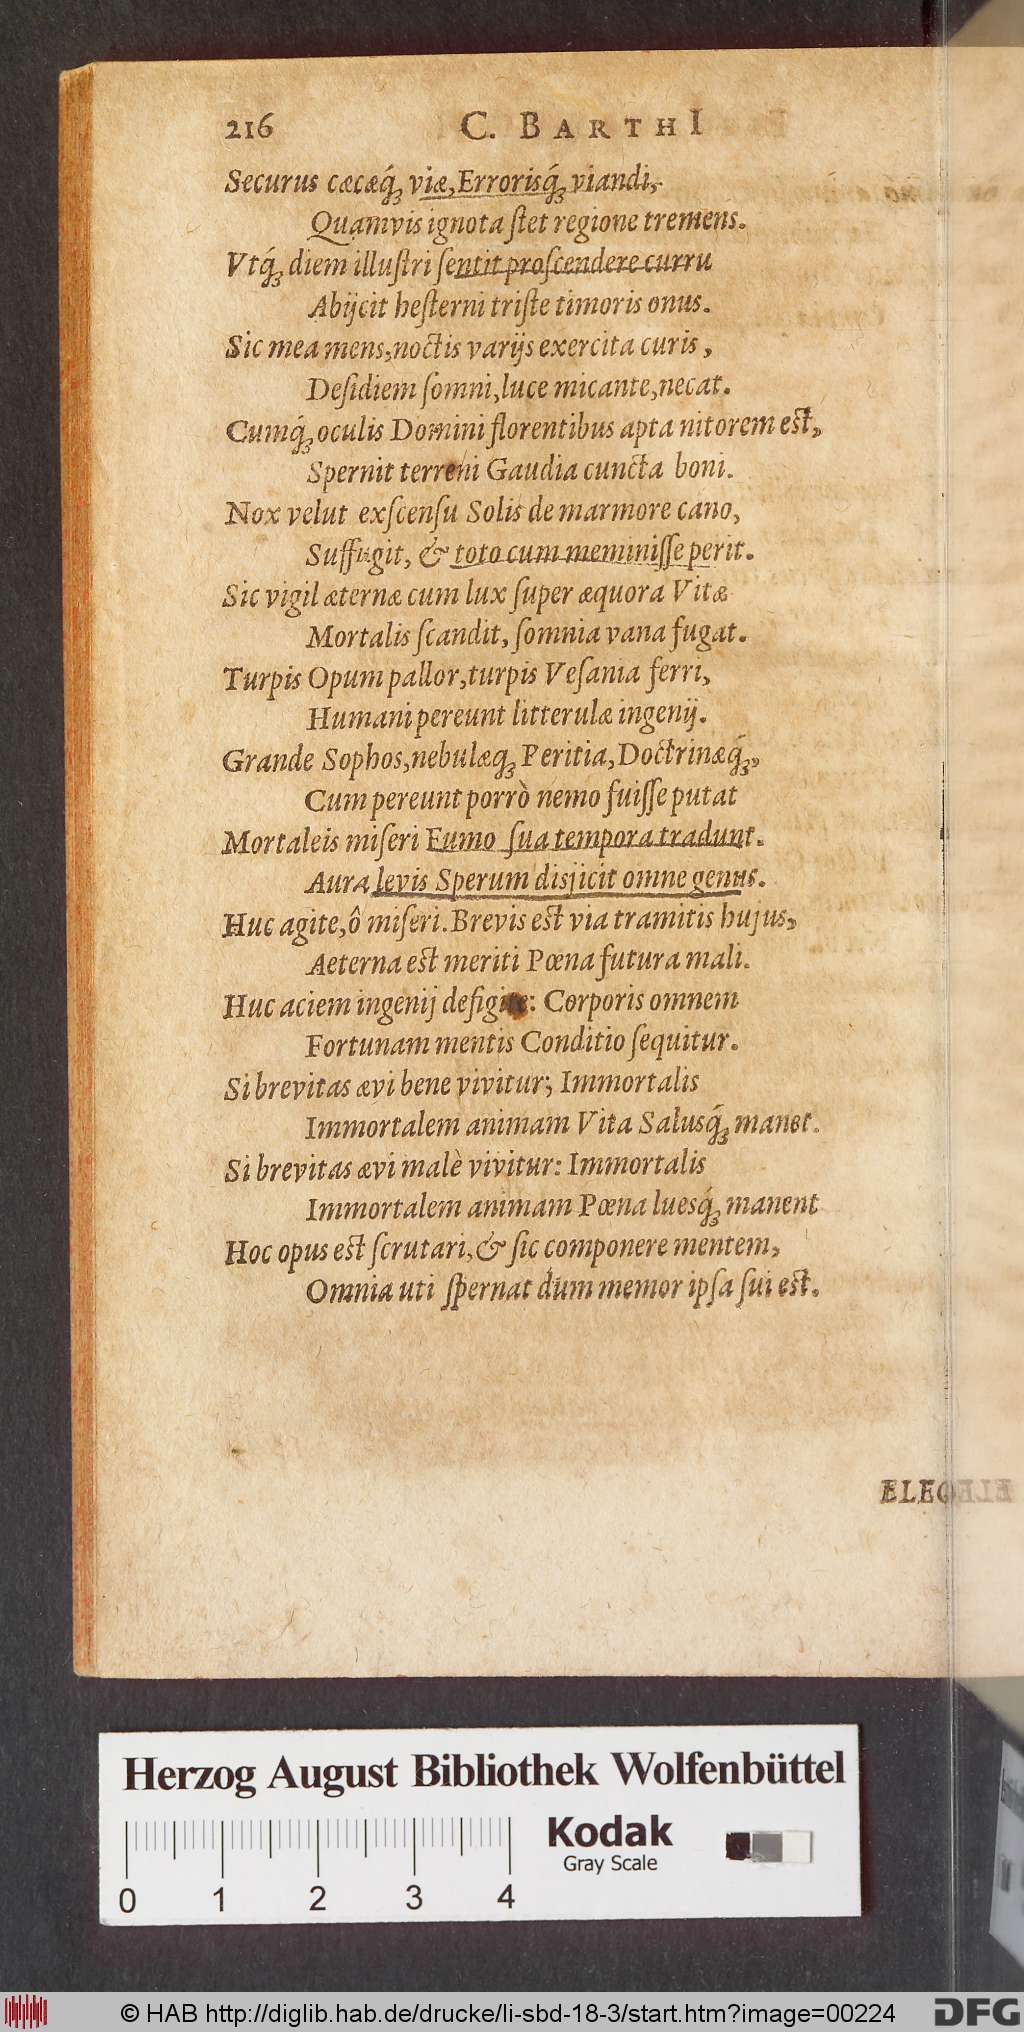 216 C. BARTHI
Securus cæcæq́; viæ, Errorisq́; viandi,
Quamvis ignota ſtet regione tremens.
Vtq́; diem illuſtri ſentit proſcendere curru
Abijcit heſterni triſte timoris onus.
Sic mea mens, noctis varijs exercita curis,
Deſidiem ſomni, luce micante, necat.
Cumq́; oculis Domini florentibus apta nitorem est,
Spernit terreni Gaudia cuncta boni.
Nox velut exſcenſu Solis de marmore cano,
Suffugit, & toto cum meminiſſe perit.
Sic vigil æternæ cum lux ſuper æquora Vitæ
Mortalis ſcandit, ſomnia vana fugat.
Turpis Opum pallor, turpis Veſania ferri,
Humani pereunt litterulæ ingenij.
Grande Sophos, nebulæq; Peritia, Doctrinæq́;,
Cum pereunt porrò nemo fuiſſe putat
Mortaleis miſeri Fumo ſua tempora tradunt.
Aura levis Sperum disjicit omne genus.
Huc agite, ô miſeri. Brevis est via tramitis hujus,
Aeterna est meriti Pœna futura mali.
Huc aciem ingenij defigite: Corporis omnem
Fortunam mentis Conditio ſequitur.
Si brevitas ævi bene vivitur; Immortalis
Immortalem animam Vita Salusq́; manet.
Si brevitas ævi malè vivitur: Immortalis
Immortalem animam Pœna luesq́; manent
Hoc opus est ſcrutari, & ſic componere mentem,
Omnia uti ſpernat dum memor ipſa ſui est.
Herzog August Bibliothek Wolfenbüttel
Kodak
Gray Scale
0 1 2 3 4
© HAB http://diglib.hab.de/drucke/li-sbd-18-3/start.htm?image=00224 DFG